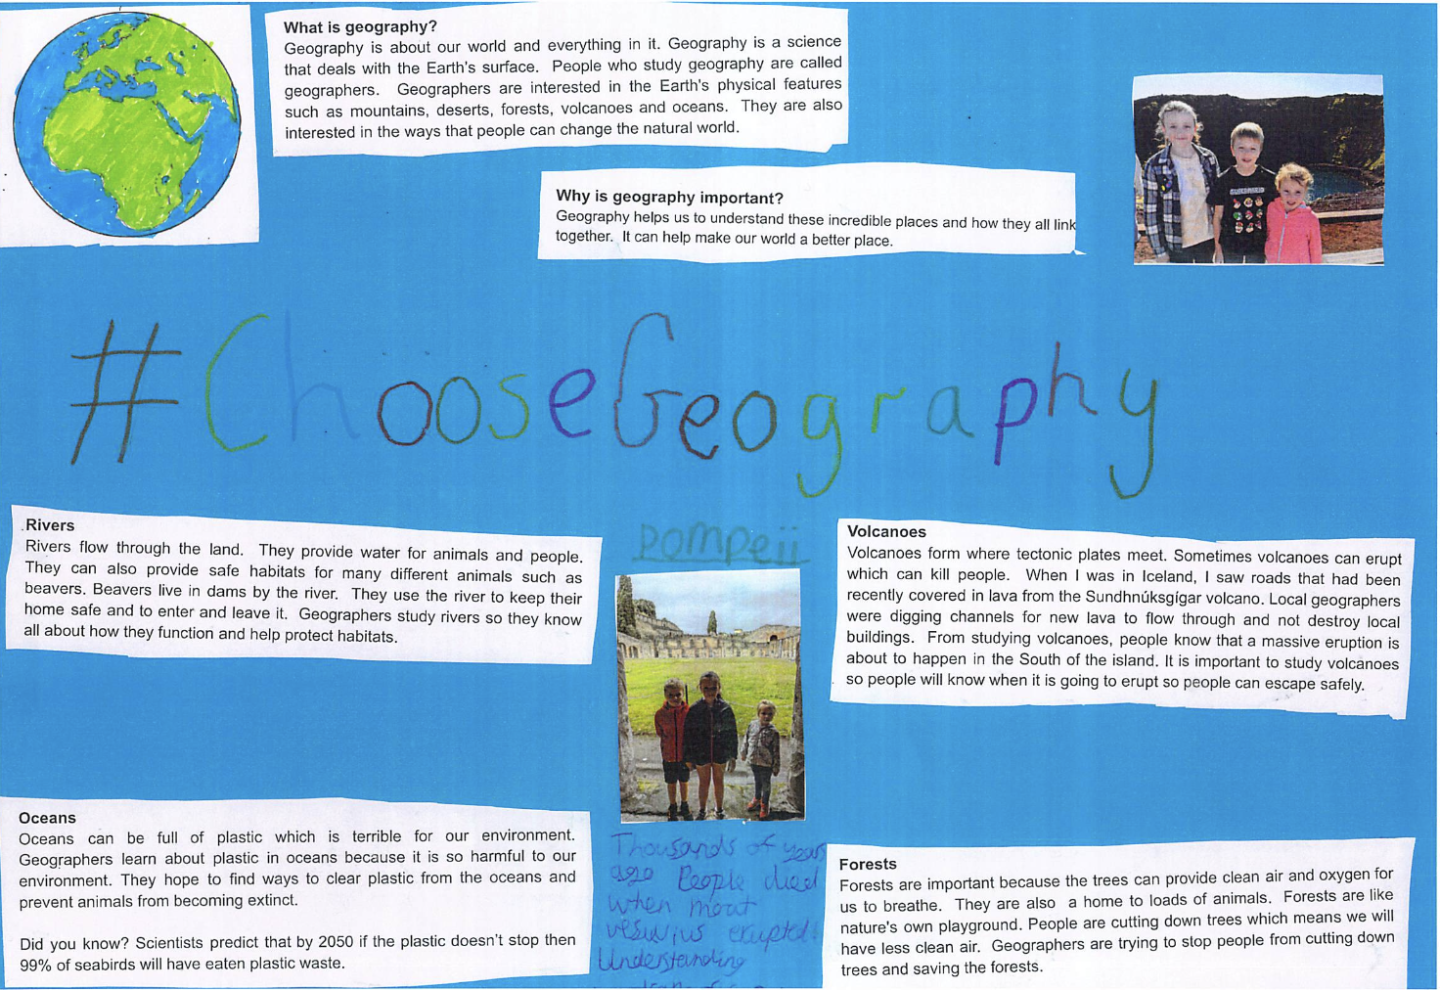 What is geography?
Geography is about our world and everything in it. Geography is a science
that deals with the Earth's surface. People who study geography are called
geographers. Geographers are interested in the Earth's physical features
such as mountains, deserts, forests, volcanoes and oceans. They are also
interested in the ways that people can change the natural world.
Why is geography important?
Geography helps us to understand these incredible places and how they all link
together. It can help make our world a better place.
#ChooseGeography
Rivers
Rivers flow through the land. They provide water for animals and people.
They can also provide safe habitats for many different animals such as
beavers. Beavers live in dams by the river. They use the river to keep their
home safe and to enter and leave it. Geographers study rivers so they know
all about how they function and help protect habitats.
pompeii
Volcanoes
Volcanoes form where tectonic plates meet. Sometimes volcanoes can erupt
which can kill people. When I was in Iceland, I saw roads that had been
recently covered in lava from the Sundhnúksgígar volcano. Local geographers
were digging channels for new lava to flow through and not destroy local
buildings. From studying volcanoes, people know that a massive eruption is
about to happen in the South of the island. It is important to study volcanoes
so people will know when it is going to erupt so people can escape safely.
Oceans
Oceans can be full of plastic which is terrible for our environment.
Geographers learn about plastic in oceans because it is so harmful to our
environment. They hope to find ways to clear plastic from the oceans and
prevent animals from becoming extinct.
Did you know? Scientists predict that by 2050 if the plastic doesn't stop then
99% of seabirds will have eaten plastic waste.
Thousands of years
ago People died
when mout
vesuvius erupted!
Understanding
Forests
Forests are important because the trees can provide clean air and oxygen for
us to breathe. They are also a home to loads of animals. Forests are like
nature's own playground. People are cutting down trees which means we will
have less clean air. Geographers are trying to stop people from cutting down
trees and saving the forests.